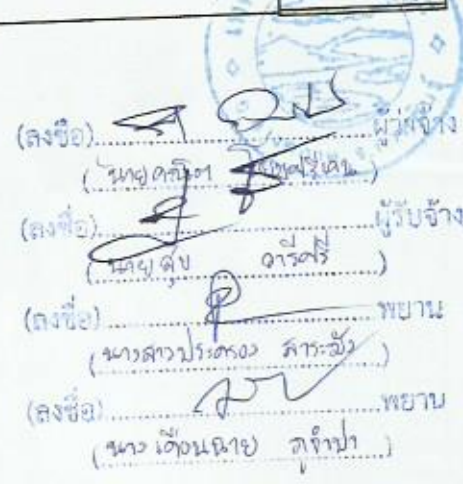 (ลงชื่อ) ผู้ว่าจ้าง
(นายคณิตา
(ลงชื่อ) ผู้รับจ้าง
(นายสุข วารีศรี)
(ลงชื่อ) พยาน
(นางสาวประครอง สาระมัง)
(ลงชื่อ) พยาน
(นางเดือนฉาย ภูจำปา)